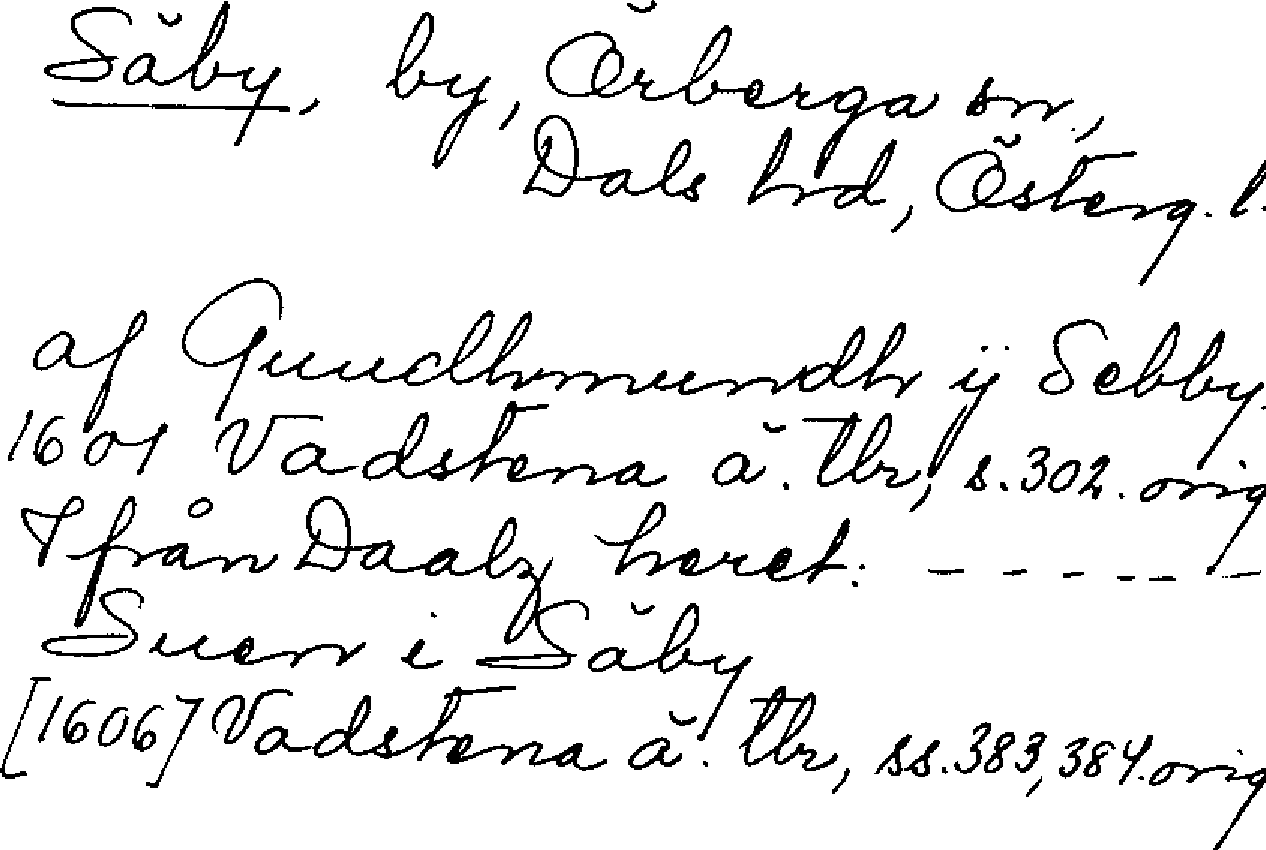 Säby, by, Örberga sn,
Dals hd, Österg. l.
af Guudhmundh ij Sebby.
1601 Vadstena ä. tbr, s. 302. orig
T från Daalz heret: – – – – – –
Suen i Säby
[1606] Vadstena ä. tbr, ss. 383, 384. orig